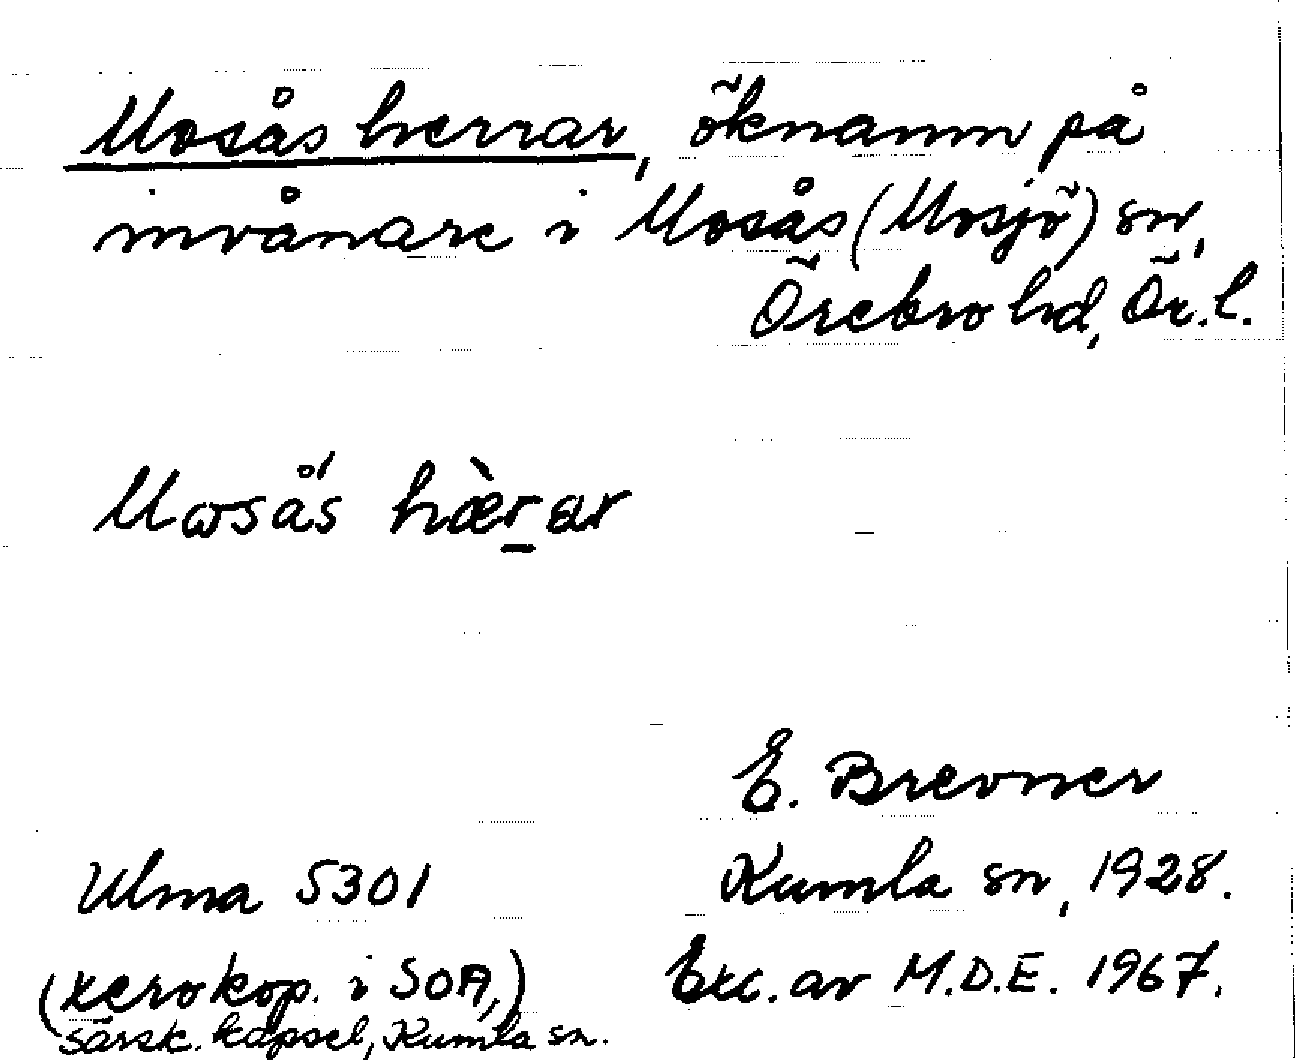 Mosås herrar, öknamn på
invånare i Mosås (Mosjö) sn,
Örebro hd, Ör.l.
Mωså´s hæ̀r̲ar
E. Brevner
Ulma 5301 Kumla sn, 1928.
(xerokop. i SOA,) Exc. av M.D.E. 1967.
särsk. kapsel, Kumla sn.